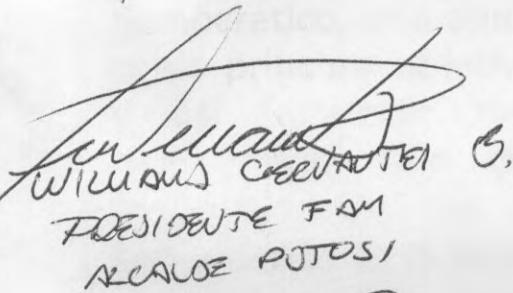 WILLIAMS CERVANTES B.
PRESIDENTE FAM
ALCALDE POTOSI